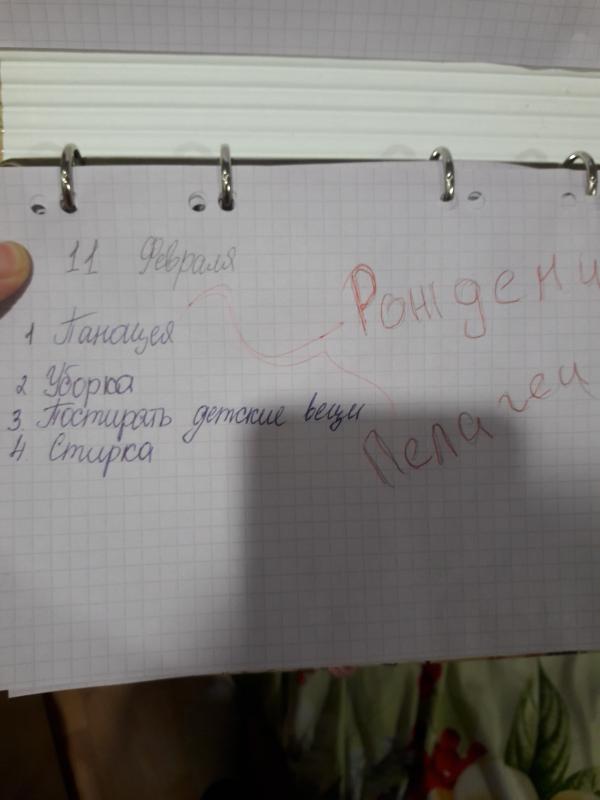 11 Февраля
1 Панацея
2 Уборка
3. Постирать детские вещи
4 Стирка
Рождени
Пелагеи